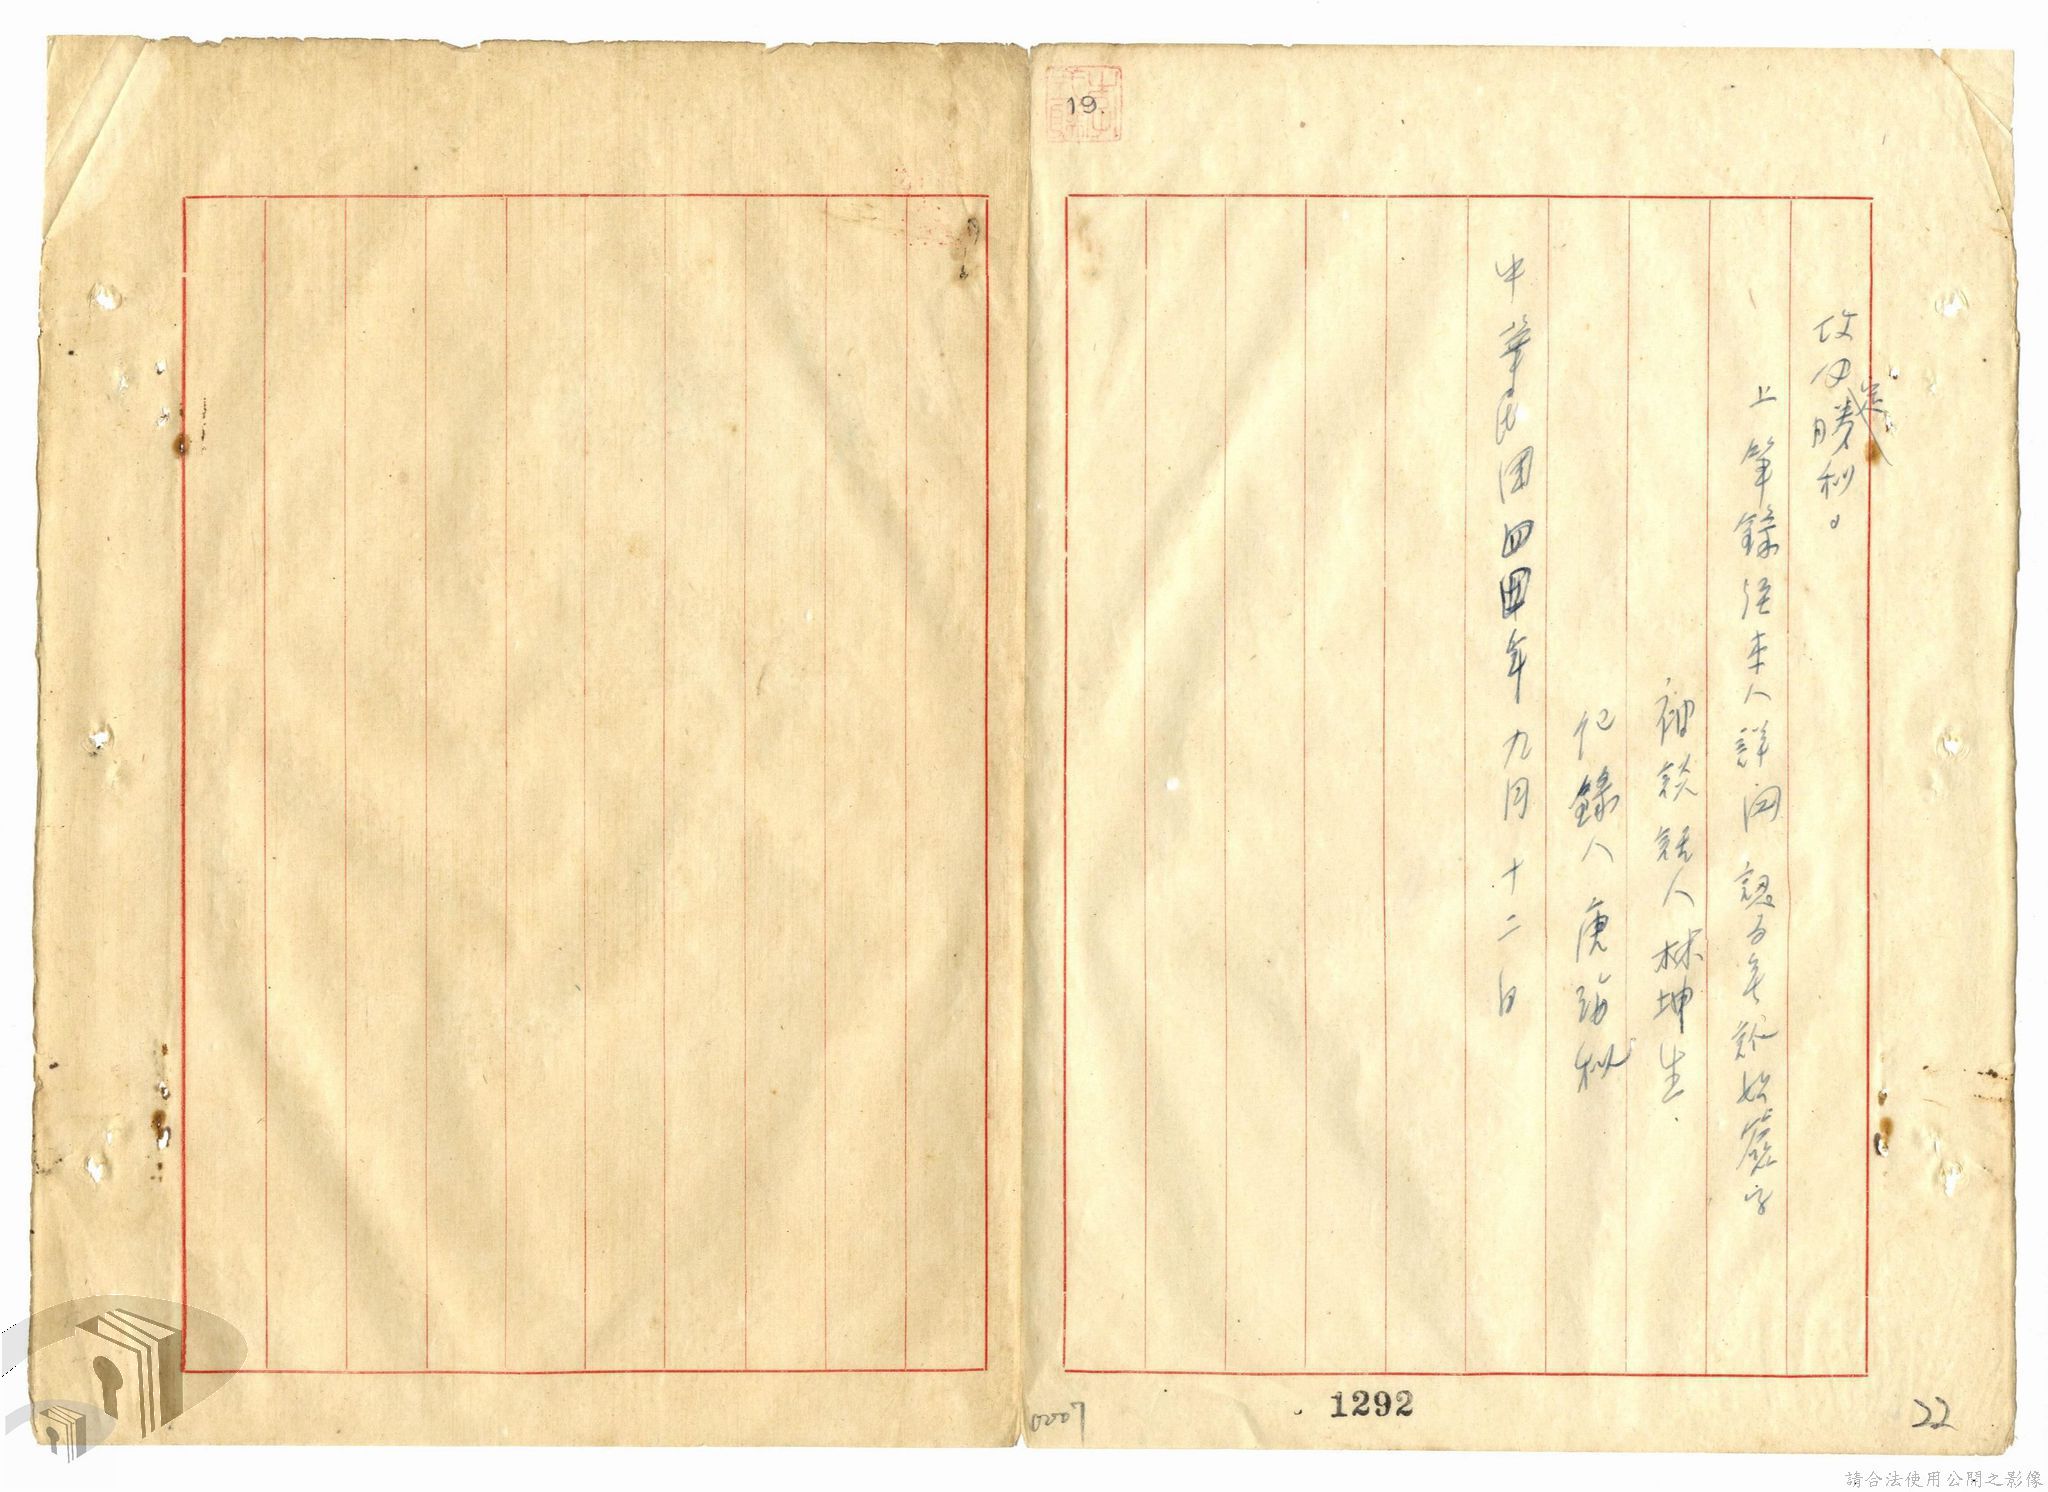 攻必勝利。
上筆錄經本人詳閱認為無訛始簽字
被談話人林坤生
記錄人唐
中華民國四四年九月十二日
19.
1292
22
請合法使用公開之影像